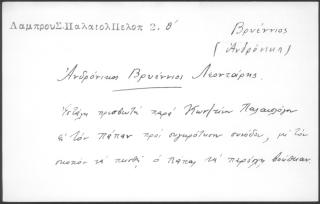 Λαμπρου Σ. Παλαιολ Πελοπ 2. θ'
Βρυέννιος
(Ἀνδρόνικος)
Ἀνδρόνικος Βρυέννιος Λεοντάρης.
Ἐστάλη πρεσβευτὴς παρὰ Κων/τίνου Παλαιολόγου
εἰς τὸν πάπαν πρὸς συγκρότησιν συνόδου, μὲ τὸν
σκοπὸν νὰ πεισθῇ ὁ πάπας νὰ παράσχῃ βοήθειαν.